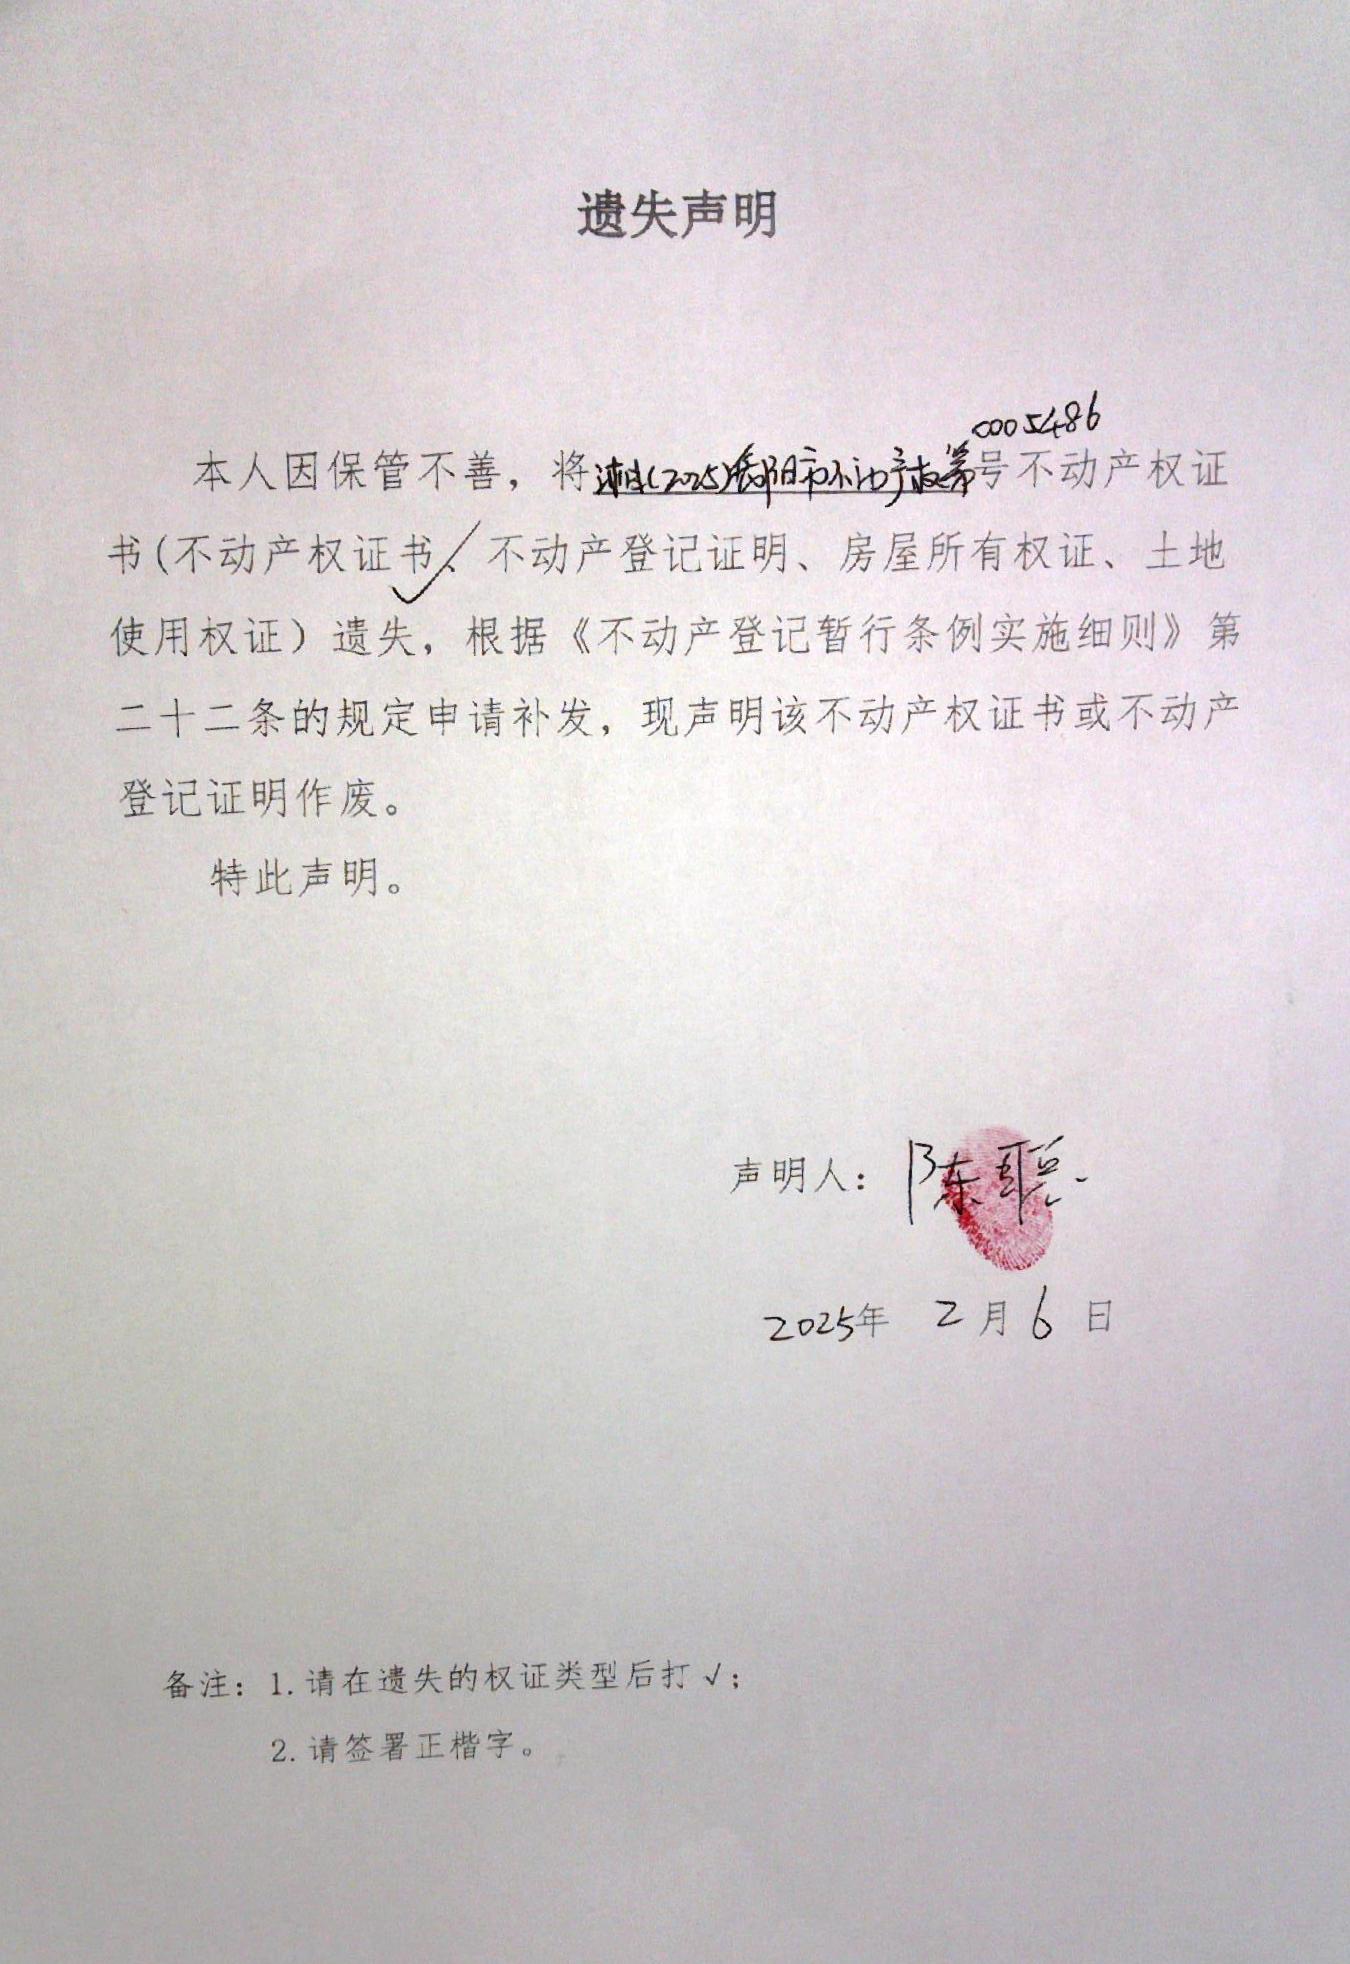 遗失声明
本人因保管不善，将湘(2025)邵阳市不动产权第0005486号不动产权证
书(不动产权证书✓、不动产登记证明、房屋所有权证、土地
使用权证）遗失，根据《不动产登记暂行条例实施细则》第
二十二条的规定申请补发，现声明该不动产权证书或不动产
登记证明作废。
特此声明。
声明人：陈聪
2025年 2月6日
备注：1.请在遗失的权证类型后打√；
2.请签署正楷字。